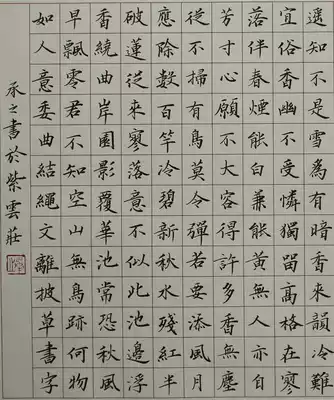 遥知不是雪為有暗香來韻冷難
宜俗香幽不受憐獨留高格在寥
落伴春煙能白兼能黃無人亦自
芳寸心願不大容得許多香無塵
從不掃有鳥莫令彈若要添風月
應除數百竿冷碧新秋水殘紅半
破蓮從來寥落意不似此池邊浮
香繞曲岸園影覆華池常恐秋風
早飄零君不知空山無鳥跡何物
如人意委曲結繩文離披草書字
承之書於紫雲莊